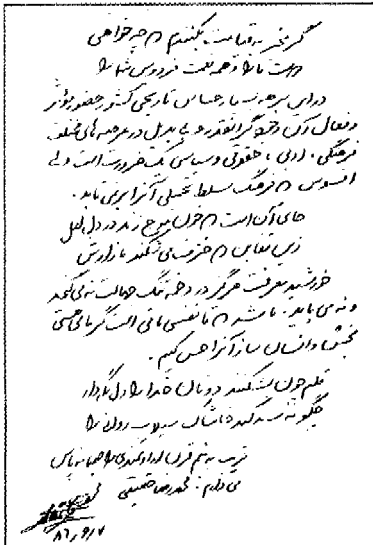 گر مخیر به قیامت بکنندم که چه خواهی
دوست ما را و همه نعمت فردوس شما را
در این برهه بسیار حساس تاریخی کشور حضور مؤثر
و فعال آن وجود گرانقدر و بی بدیل در عرصه های مختلف
فرهنگی، ادبی، حقوقی و سیاسی یک ضرورت است ولی
افسوس که فرهنگ سلط تحمیلی آنرا برنمی تابد.
جای آن است که خون موج زند در دل لعل
زین تغابن که خزف می شکند بازارش
خورشید معرفت هرگز در دخمه تنگ جهالت نمی گنجد
و نمی پاید. باشد که تا نفسی باقی است گرمای هستی
بخش و انسان ساز آنرا حس کنیم.
قلم چون بشکنند و نای
چگونه سد کند خاشاک سیلاب روانی را
قریب به نیم قرن
می دارم. محمدرضا حقیقی
۸۶/۹/۷